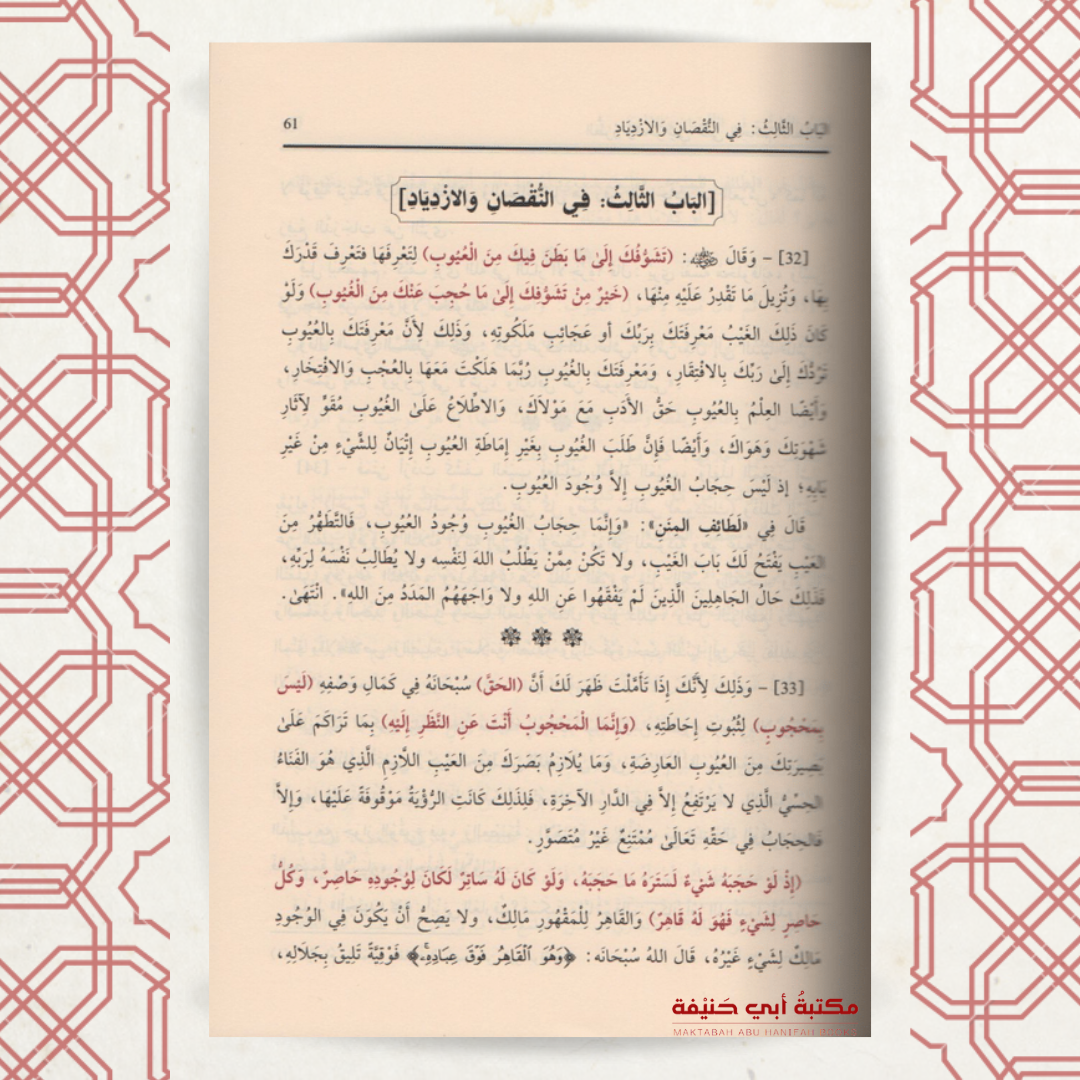 البَابُ الثَّالِثُ: فِي النُّقْصَانِ وَالازْدِيَادِ 61
[البَابُ الثَّالِثُ: فِي النُّقْصَانِ وَالازْدِيَادِ]
[32] – وَقَالَ ﷺ: (تَشَوُّفُكَ إِلَىٰ مَا بَطَنَ فِيكَ مِنَ الْعُيُوبِ) لِتَعْرِفَهَا فتَعْرِفَ قَدْرَكَ
بِهَا، وَتُزِيلَ مَا تَقْدِرُ عَلَيْهِ مِنْهَا، (خَيْرٌ مِنْ تَشَوُّفِكَ إِلَىٰ مَا حُجِبَ عَنْكَ مِنَ الْغُيُوبِ) وَلَوْ
كَانَ ذَلِكَ الغَيْبُ مَعْرِفَتَكَ بِرَبِّكَ أو عَجَائِبِ مَلَكُوتِهِ، وَذَلِكَ لِأَنَّ مَعْرِفَتَكَ بِالعُيُوبِ
تَرُدُّكَ إِلىٰ رَبِّكَ بِالافْتِقَارِ، وَمَعْرِفَتَكَ بِالغُيُوبِ رُبَّمَا هَلَكْتَ مَعَهَا بِالعُجْبِ وَالافْتِخَارِ،
وَأَيْضًا العِلْمُ بِالعُيُوبِ حَقُّ الأَدَبِ مَعَ مَوْلَاكَ، وَالاطِّلَاعُ عَلَىٰ الغُيُوبِ مُقَوٍّ لِآثَارِ
شَهْوَتِكَ وَهَوَاكَ، وَأَيْضًا فَإِنَّ طَلَبَ الغُيُوبِ بِغَيْرِ إِمَاطَةِ العُيُوبِ إِتْيَانٌ لِلشَّيْءِ مِنْ غَيْرِ
بَابِهِ؛ إذ لَيْسَ حِجَابُ الغُيُوبِ إِلاَّ وُجُودَ العُيُوبِ.
قَالَ فِي «لَطَائِفِ المِنَنِ»: «وَإِنَّمَا حِجَابُ الغُيُوبِ وُجُودُ العُيُوبِ، فَالتَّطَهُّرُ مِنَ
العَيْبِ يَفْتَحُ لَكَ بَابَ الغَيْبِ، ولا تَكُنْ مِمَّنْ يَطْلُبُ اللهَ لِنَفْسِه ولا يُطَالِبُ نَفْسَهُ لِرَبِّهِ،
فَذَلِكَ حَالُ الجَاهِلِينَ الَّذِينَ لَمْ يَفْقَهُوا عَنِ اللهِ ولا وَاجَهَهُمُ المَدَدُ مِنَ اللهِ». انْتَهَىٰ.
[33] – وَذَلِكَ لِأَنَّكَ إِذَا تَأَمَّلْتَ ظَهَرَ لَكَ أَنَّ (الحَقَّ) سُبْحَانَهُ فِي كَمَالِ وَصْفِهِ (لَيْسَ
بِمَحْجُوبٍ) لِثُبُوتِ إِحَاطَتِهِ، (وَإِنَّمَا الْمَحْجُوبُ أَنْتَ عَنِ النَّظَرِ إِلَيْهِ) بِمَا تَرَاكَمَ عَلَىٰ
بَصِيرَتِكَ مِنَ العُيُوبِ العَارِضَةِ، وَمَا يُلَازِمُ بَصَرَكَ مِنَ العَيْبِ اللَّازِمِ الَّذِي هُوَ الفَنَاءُ
الحِسِّيُّ الَّذِي لا يَرْتَفِعُ إِلاَّ فِي الدَّارِ الآخِرَةِ، فَلِذَلِكَ كَانَتِ الرُّؤْيَةُ مَوْقُوفَةً عَلَيْهَا، وَإِلاَّ
فَالحِجَابُ فِي حَقِّهِ تَعَالَىٰ مُمْتَنِعٌ غَيْرُ مُتَصَوَّرٍ.
(إِذْ لَوْ حَجَبَهُ شَيْءٌ لَسَتَرَهُ مَا حَجَبَهُ، وَلَوْ كَانَ لَهُ سَاتِرٌ لَكَانَ لِوُجُودِهِ حَاصِرٌ، وَكُلُّ
حَاصِرٍ لِشَيْءٍ فَهُوَ لَهُ قَاهِرٌ) وَالقَاهِرُ لِلْمَقْهُورِ مَالِكٌ، ولا يَصِحُّ أَنْ يَكُوْنَ فِي الوُجُودِ
مَالِكٌ لِشَيْءٍ غَيْرُهُ، قَالَ اللهُ سُبْحَانَه: ﴿وَهُوَ ٱلْقَاهِرُ فَوْقَ عِبَادِهِۦ﴾ فَوْقِيَّةً تَلِيقُ بِجَلَالِهِ،
مكتبةُ أبي حَنيْفة
MAKTABAH ABU HANIFAH